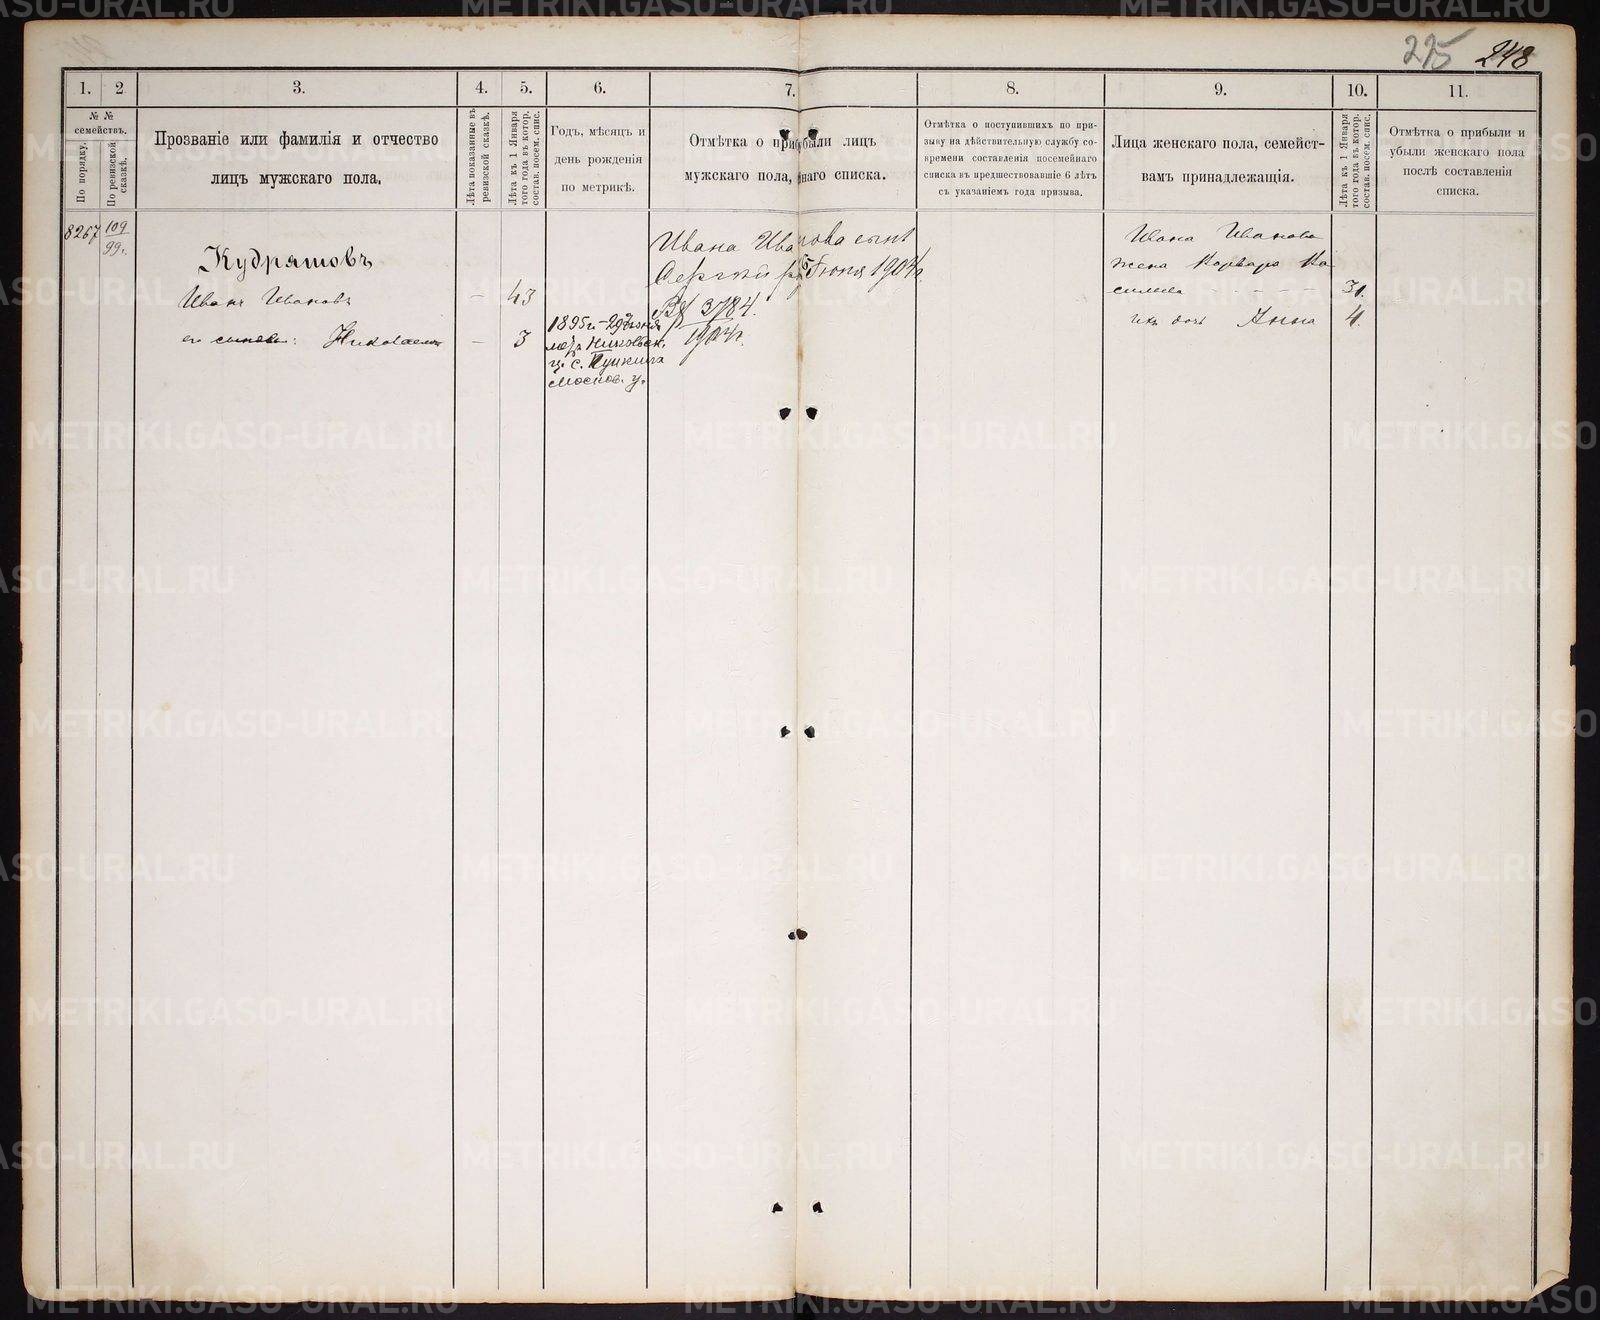 225 248
1. 2 3. 4. 5. 6. 7. 8. 9. 10. 11.
№ №
семействъ.
По порядку.
По ревизской
сказкѣ.
Прозваніе или фамилія и отчество
лицъ мужскаго пола.
Лѣта показанные въ
ревизской сказкѣ.
Лѣта къ 1 Января
того года въ котор.
состав. посем. спис.
Годъ, мѣсяцъ и
день рожденія
по метрикѣ.
Отмѣтка о прибыли лицъ
мужскаго пола, наго списка.
Отмѣтка о поступившихъ по при-
зыву на дѣйствительную службу со-
времени составленія посемейнаго
списка въ предшествовавшіе 6 лѣтъ
съ указаніемъ года призыва.
Лица женскаго пола, семейст-
вамъ принадлежащія.
Лѣта къ 1 Января
того года въ котор.
состав. посем. спис.
Отмѣтка о прибыли и
убыли женскаго пола
послѣ составленія
списка.
8267 109
99.
Кудряшовъ
Иванъ Ивановъ – 43
его сыновья: Николаемъ – 3
1895 г. – 29 Іюня
метр. Никольск.
ц. с. Пушкина
Москов. у.
Ивана Иванова сынъ
Сергѣй р. 5 Іюня 1904 г.
ВХ 3784.
1904 г.
Ивана Иванова
жена Варвара Ва-
сильева – – – – 31.
ихъ дочь Анна 4.
METRIKI.GASO-URAL.RU